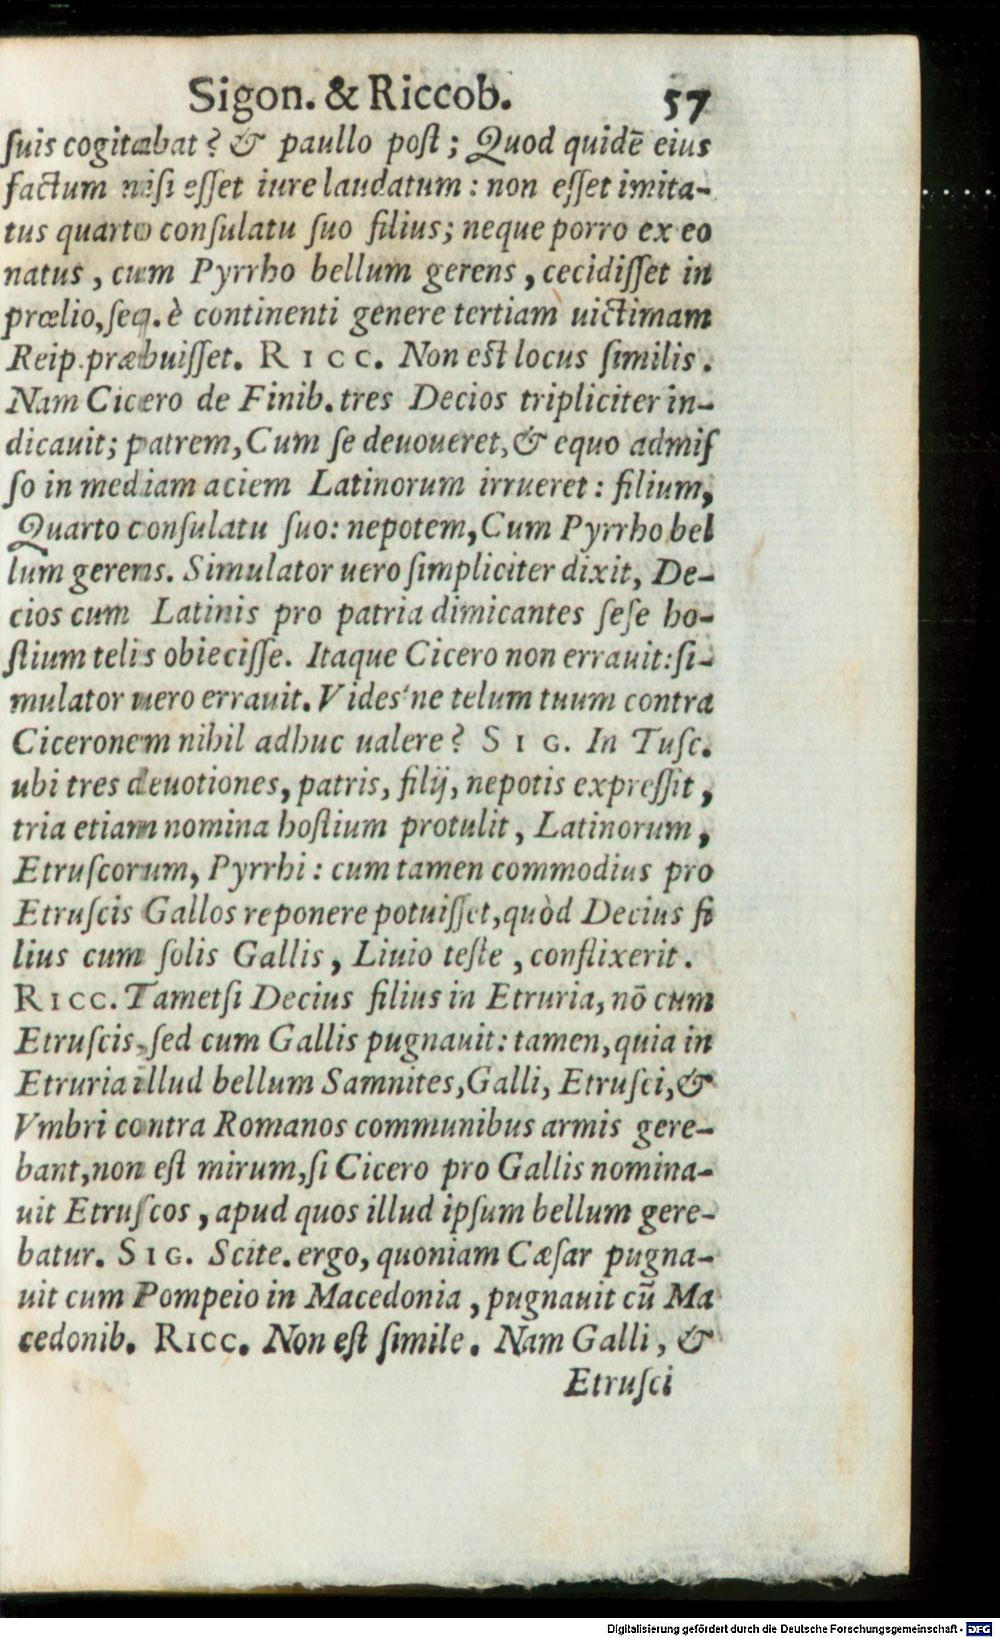 Sigon. & Riccob. 57
ſuis cogitabat? & paullo poſt; Quod quidē eius
factum niſi eſſet iure laudatum: non eſſet imita-
tus quarto conſulatu ſuo filius; neque porro ex eo
natus, cum Pyrrho bellum gerens, cecidiſſet in
prœlio, ſeq. è continenti genere tertiam uictimam
Reip. præbuiſſet. RICC. Non eſt locus ſimilis.
Nam Cicero de Finib. tres Decios tripliciter in-
dicauit; patrem, Cum ſe deuoueret, & equo admiſ
ſo in mediam aciem Latinorum irrueret: filium,
Quarto conſulatu ſuo: nepotem, Cum Pyrrho bel
lum gerens. Simulator uero ſimpliciter dixit, De-
cios cum Latinis pro patria dimicantes ſeſe ho-
ſtium telis obieciſſe. Itaque Cicero non errauit: ſi-
mulator uero errauit. Vides'ne telum tuum contra
Ciceronem nihil adhuc ualere? SIG. In Tuſc.
ubi tres deuotiones, patris, filij, nepotis expreſſit,
tria etiam nomina hoſtium protulit, Latinorum,
Etruſcorum, Pyrrhi: cum tamen commodius pro
Etruſcis Gallos reponere potuiſſet, quòd Decius fi
lius cum ſolis Gallis, Liuio teſte, conflixerit.
RICC. Tametſi Decius filius in Etruria, nō cum
Etruſcis, ſed cum Gallis pugnauit: tamen, quia in
Etruria illud bellum Samnites, Galli, Etruſci, &
Vmbri contra Romanos communibus armis gere-
bant, non eſt mirum, ſi Cicero pro Gallis nomina-
uit Etruſcos, apud quos illud ipſum bellum gere-
batur. SIG. Scite. ergo, quoniam Cæſar pugna-
uit cum Pompeio in Macedonia, pugnauit cū Ma
cedonib. RICC. Non eſt ſimile. Nam Galli, &
Etruſci
Digitalisierung gefördert durch die Deutsche Forschungsgemeinschaft - DFG